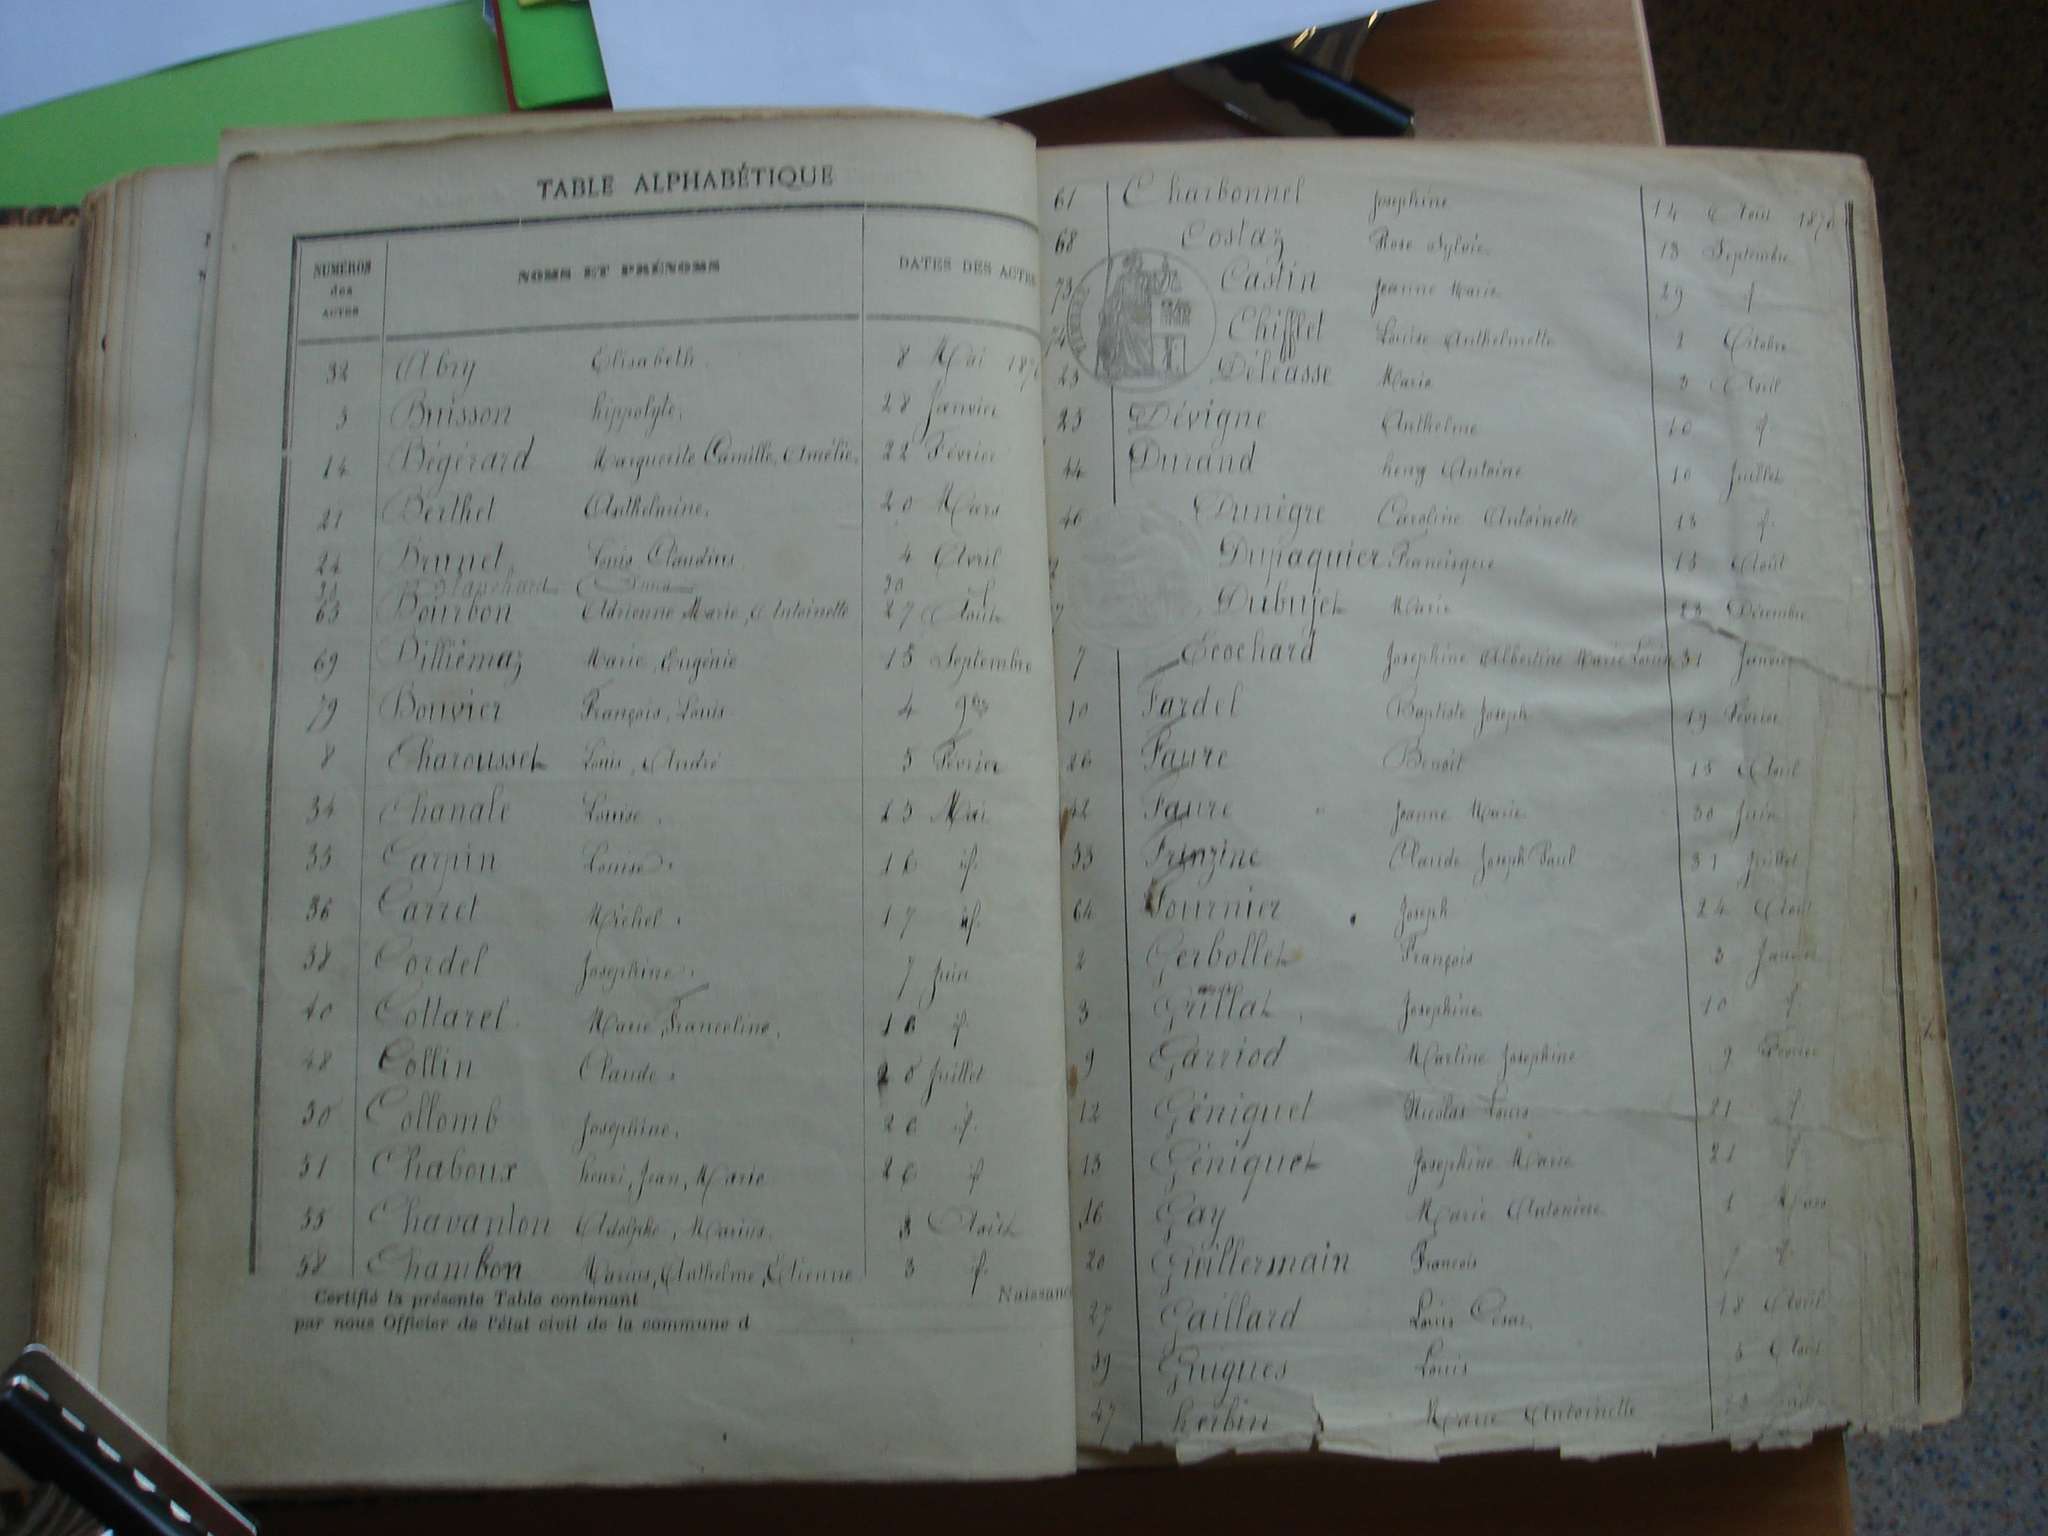 TABLE ALPHABÉTIQUE
NUMÉROS des ACTES NOMS ET PRÉNOMS DATES DES ACTES
32 Abry Elisabeth 8 Mai
5 Buisson hippolyte. 28 Janvier
14 Bégérard Marguerite Camille, Amélie, 22 Février
21 Berthet Anthelmine, 20 Mars
22 Brunet, Louis Claudius 4 Avril
31 Blanchard Anna 30 id
63 Bourbon Adrienne Marie, Antoinette 27 Août
69 Billiémaz Marie, Eugénie 15 Septembre
79 Bouvier François, Louis 4 9bre
8 Charousset Louis, André 5 Février
34 Chanale Louise, 15 Mai
35 Carpin Louise. 16 id.
36 Carret Michel. 17 id.
38 Cordel Joséphine. 7 Juin
40 Collarel Marie, Franceline, 16 id.
48 Collin Claude. 20 Juillet
50 Collomb Joséphine. 26 id.
51 Chaboux henri, Jean, Marie 26 id
55 Chavanton Adolphe, Marius. 3 Août
58 Chambon Marius, Anthelme, Etienne 3 id.
Certifié la présente Table contenant Naissance
par nous Officier de l'état civil de la commune d
61 Charbonnel Joséphine 14 Août
68 Costaz Rose Sylvie 13 Septembre
73 Castin Jeanne Marie 29 id
Chifflet Louise Anthelmette 2 Octobre
23 Délcasse Marie 3 Avril
25 Dévigne Anthelme 10 id
44 Durand heny Antoine 10 Juillet
46 Dunègre Caroline Antoinette 13 id.
Dupaquier Francisque 15 Août
Dubujet Marie 23 Décembre
7 Ecochard Joséphine Albertine Marie Louise 31 Janvier
10 Fardel Baptiste Joseph 19 Février
26 Faure Benoit 15 Avril
42 Faure " Jeanne Marie 30 Juin
53 Frinzine Claude Joseph Paul 31 Juillet
64 Fournier Joseph 24 Août
2 Gerbollet François 3 Janvier
3 Grillat Joséphine 10 id
9 Garriod Martine Joséphine 9 Février
12 Géniquet Nicolas Louis 21 id
13 Géniquet Joséphine Marie 21 id
16 Gay Marie Antonine 1 Mars
20 Guillermain François 7 id
27 Gaillard Louis César 18 Avril
59 Gugues Louis 5 Août
47 herbin Marie Antoinette